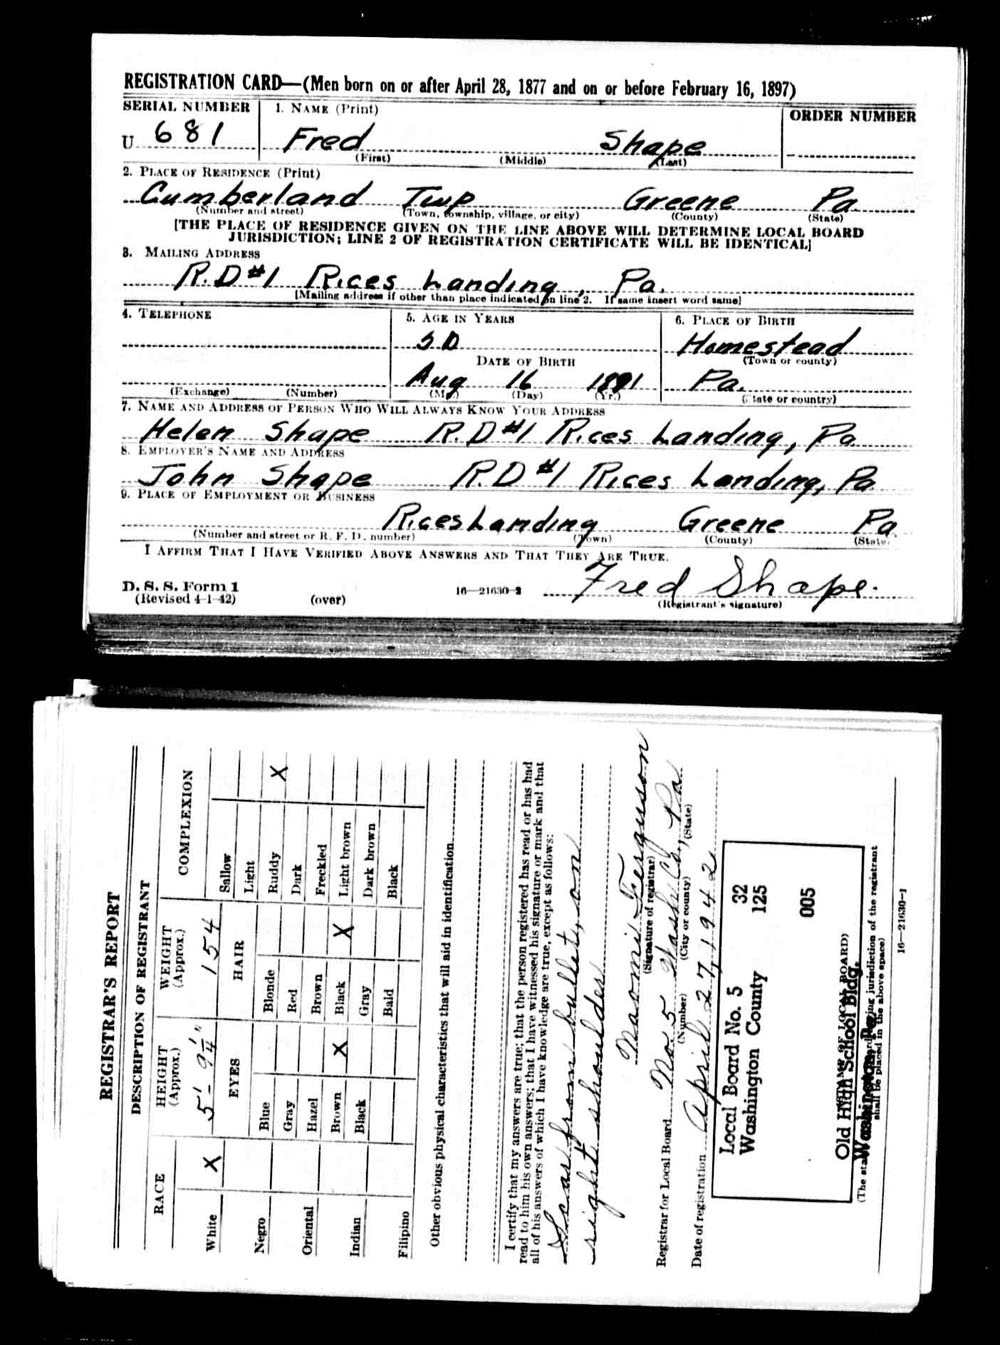 REGISTRATION CARD—(Men born on or after April 28, 1877 and on or before February 16, 1897)
SERIAL NUMBER 1. NAME (Print) ORDER NUMBER
U 681 Fred Shape
(First) (Middle) (Last)
2. PLACE OF RESIDENCE (Print)
Cumberland Twp Greene Pa
(Number and street) (Town, township, village, or city) (County) (State)
[THE PLACE OF RESIDENCE GIVEN ON THE LINE ABOVE WILL DETERMINE LOCAL BOARD
JURISDICTION; LINE 2 OF REGISTRATION CERTIFICATE WILL BE IDENTICAL]
3. MAILING ADDRESS
R.D #1 Rices Landing, Pa.
[Mailing address if other than place indicated on line 2. If same insert word same]
4. TELEPHONE 5. AGE IN YEARS 6. PLACE OF BIRTH
50 Homestead
DATE OF BIRTH (Town or county)
Aug 16 1891 Pa.
(Exchange) (Number) (Mo.) (Day) (Yr.) (State or country)
7. NAME AND ADDRESS OF PERSON WHO WILL ALWAYS KNOW YOUR ADDRESS
Helen Shape R.D #1 Rices Landing, Pa
8. EMPLOYER'S NAME AND ADDRESS
John Shape R.D #1 Rices Landing, Pa
9. PLACE OF EMPLOYMENT OR BUSINESS
Rices Landing Greene Pa
(Number and street or R. F. D. number) (Town) (County) (State)
I AFFIRM THAT I HAVE VERIFIED ABOVE ANSWERS AND THAT THEY ARE TRUE.
Fred Shape.
D. S. S. Form 1
(Revised 4-1-42) (over) 16—21630-2 (Registrant's signature)
REGISTRAR'S REPORT
DESCRIPTION OF REGISTRANT
RACE HEIGHT (Approx.) WEIGHT (Approx.) COMPLEXION
White X 5'- 9 1/4" 154 Sallow
EYES HAIR Light
Negro Blue Blonde Ruddy X
Gray Red Dark
Oriental Hazel Brown Freckled
Indian Brown X Black X Light brown
Black Gray Dark brown
Filipino Bald Black
Other obvious physical characteristics that will aid in identification
I certify that my answers are true; that the person registered has read or has had
read to him his own answers; that I have witnessed his signature or mark and that
all of his answers of which I have knowledge are true, except as follows:
Scar from bullet, on
right shoulder
Naomi Ferguson
(Signature of registrar)
Registrar for Local Board No. 5 Wash. Co., Pa
(Number) (City or county) (State)
Date of registration April 27, 1942
Local Board No. 5 32
Washington County 125
005
Old High School Bldg.
(STAMP OF LOCAL BOARD)
Washington, Pa.
(The stamp of the local board having jurisdiction of the registrant
shall be placed in the above space)
16—21630-1